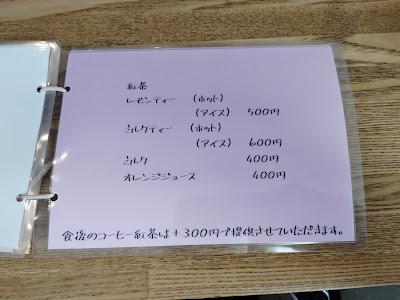 紅茶
レモンティー (ホット)
(アイス) 500円
ミルクティー (ホット)
(アイス) 600円
ミルク 400円
オレンジジュース 400円
食後のコーヒー紅茶は+300円で提供させていただきます。